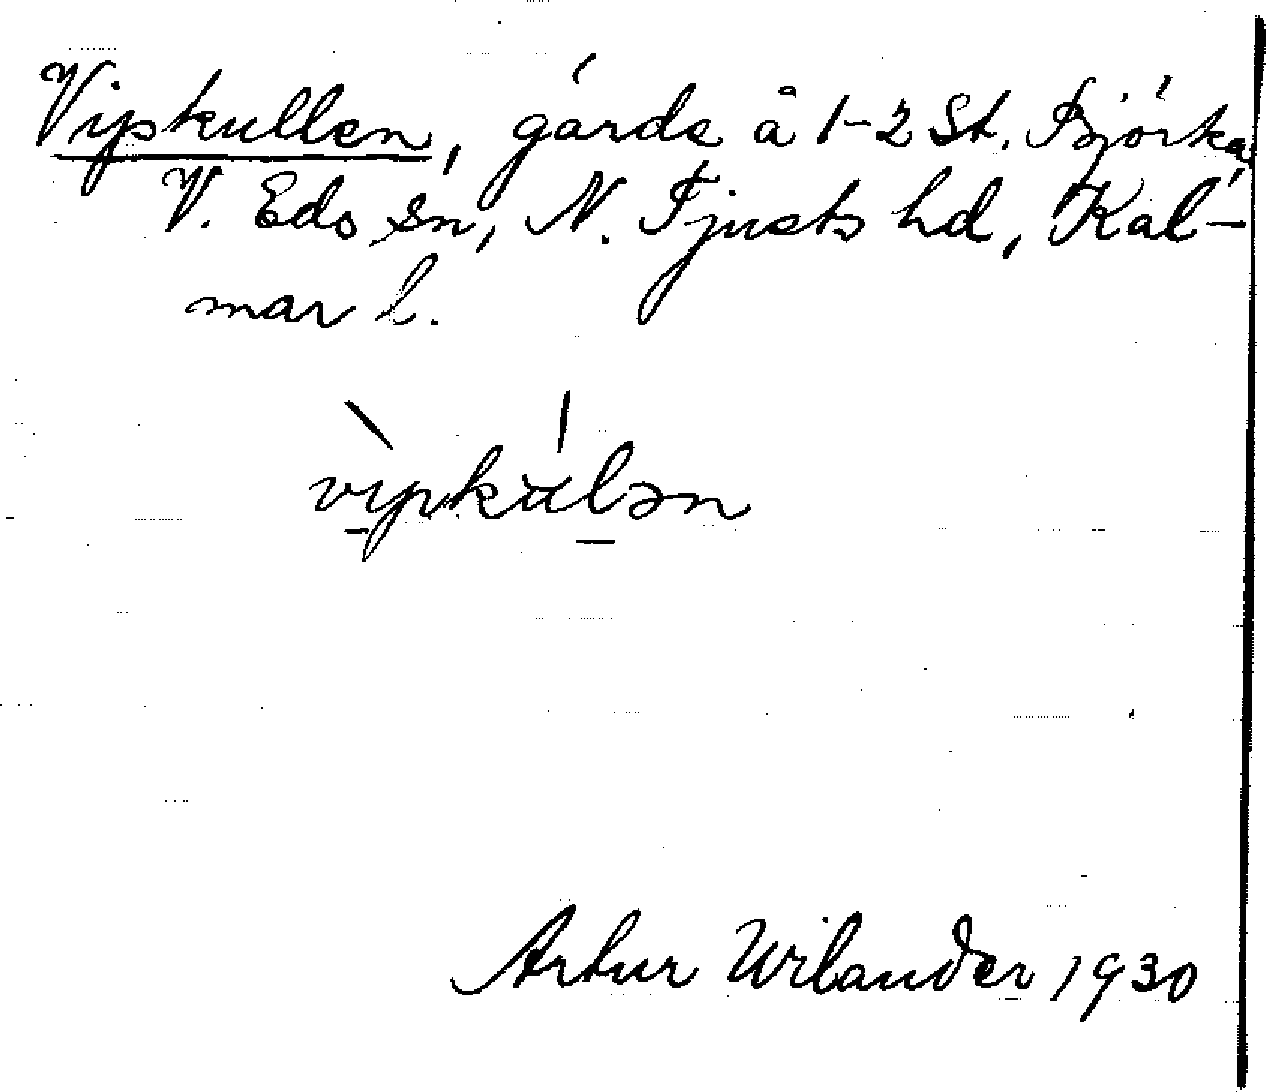 Vipkullen, gärde å 1-2 St. Björka,
V. Eds sn, N. Tjusts hd, Kal-
mar l.
vìpkúlən
Artur Wilander 1930